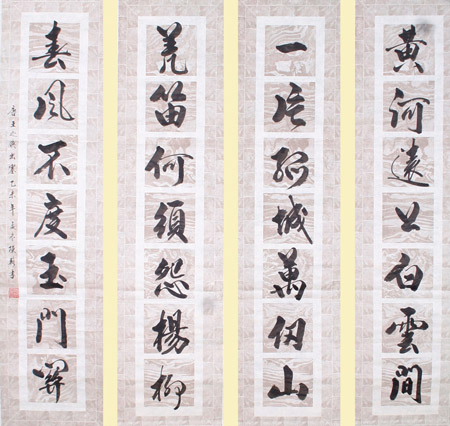 黄河遠上白雲間
一片孤城萬仞山
羌笛何須怨楊柳
春風不度玉門關
唐王之渙出塞乙未年書